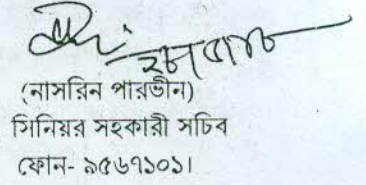 (নাসরিন পারভীন)
সিনিয়র সহকারী সচিব
ফোন- ৯৫৬৭১০১।